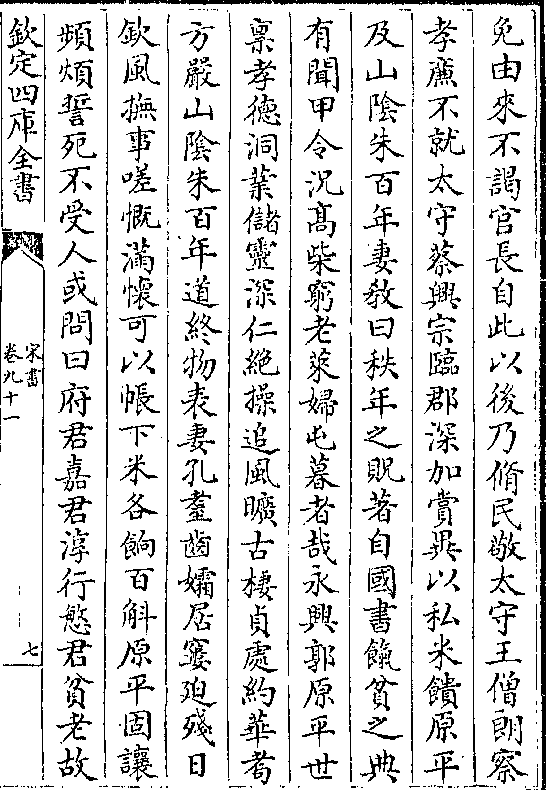 免由來不謁官長自此以後乃脩民敬太守王僧朗察
孝廉不就太守蔡興宗臨郡深加賞異以私米饋原平
及山陰朱百年妻教曰秩年之貺著自國書餼貧之典
有聞甲令況髙柴窮老萊婦屯暮者哉永興郭原平世
禀孝德洞業儲靈深仁絶操追風曠古棲貞處約華耇
方嚴山陰朱百年道終物表妻孔耋齒孀居窶迫殘日
欽風撫事嗟慨滿懷可以帳下米各餉百斛原平固讓
頻煩誓死不受人或問曰府君嘉君淳行愍君貧老故
欽定四庫全書
宋書
卷九十一
七